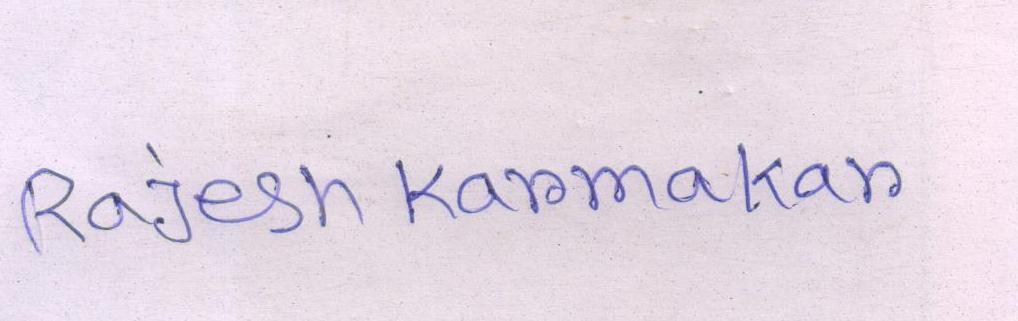 Rajesh Karmakar